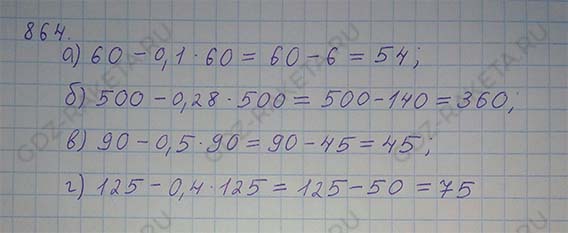 864.
а) 60 – 0,1 · 60 = 60 – 6 = 54;
б) 500 – 0,28 · 500 = 500 – 140 = 360;
в) 90 – 0,5 · 90 = 90 – 45 = 45;
г) 125 – 0,4 · 125 = 125 – 50 = 75
GDZ-RAKETA.RU
GDZ-RAKETA.RU
GDZ-RAKETA.RU